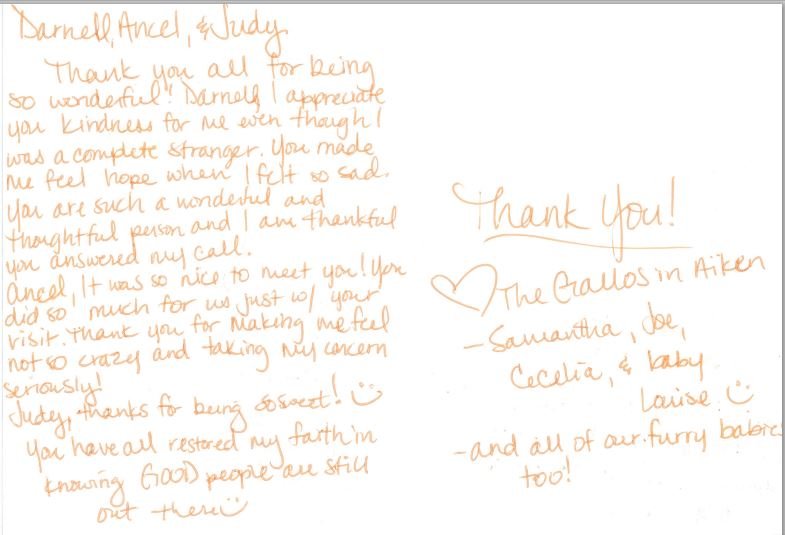 Darnell, Ancel, & Judy
Thank you all for being
so wonderful! Darnell, I appreciate
you kindness for me even though I
was a complete stranger. You made
me feel hope when I felt so sad.
You are such a wonderful and
thoughtful person and I am thankful
you answered my call.
Ancel, It was so nice to meet you! You
did so much for us just w/ your
visit. Thank you for making me feel
not so crazy and taking my concern
seriously!
Judy, thanks for being so sweet!
You have all restored my faith in
knowing GOOD people are still
out there
Thank You!
The Grallos in Aiken
- Samantha, Joe,
Cecelia, & baby
Louise
- and all of our furry babies
too!